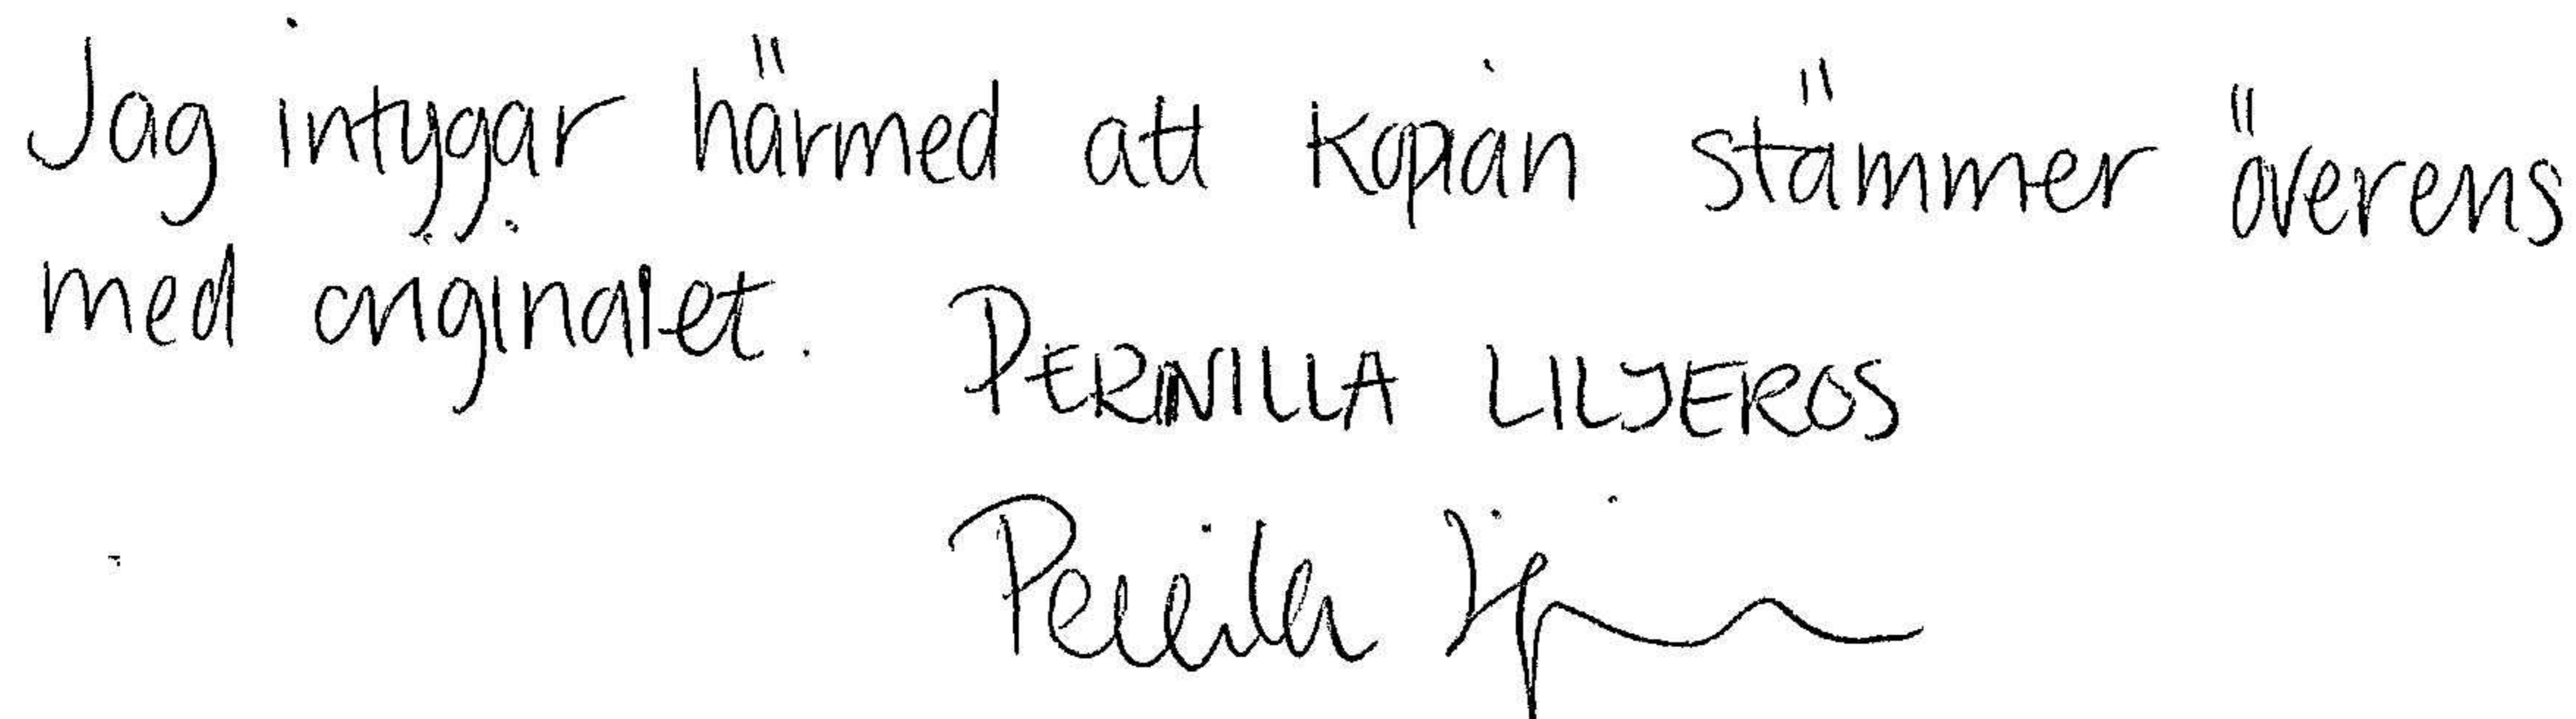 Jag intygar härmed att kopian stämmer överens
med originalet.
PERNILLA LILJEROS
Pernilla